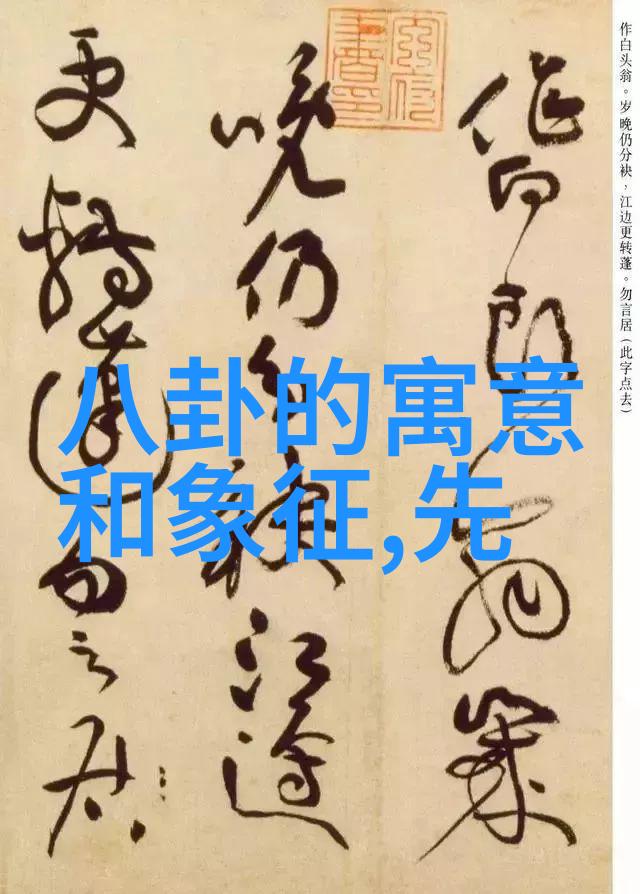 作白头翁。岁晚仍分袂，江边更转蓬。勿言居（此字点去）
作白頭翁歲
晚仍分袂江邊
更轉蓬勿言居
八卦的寓意
和象征,先